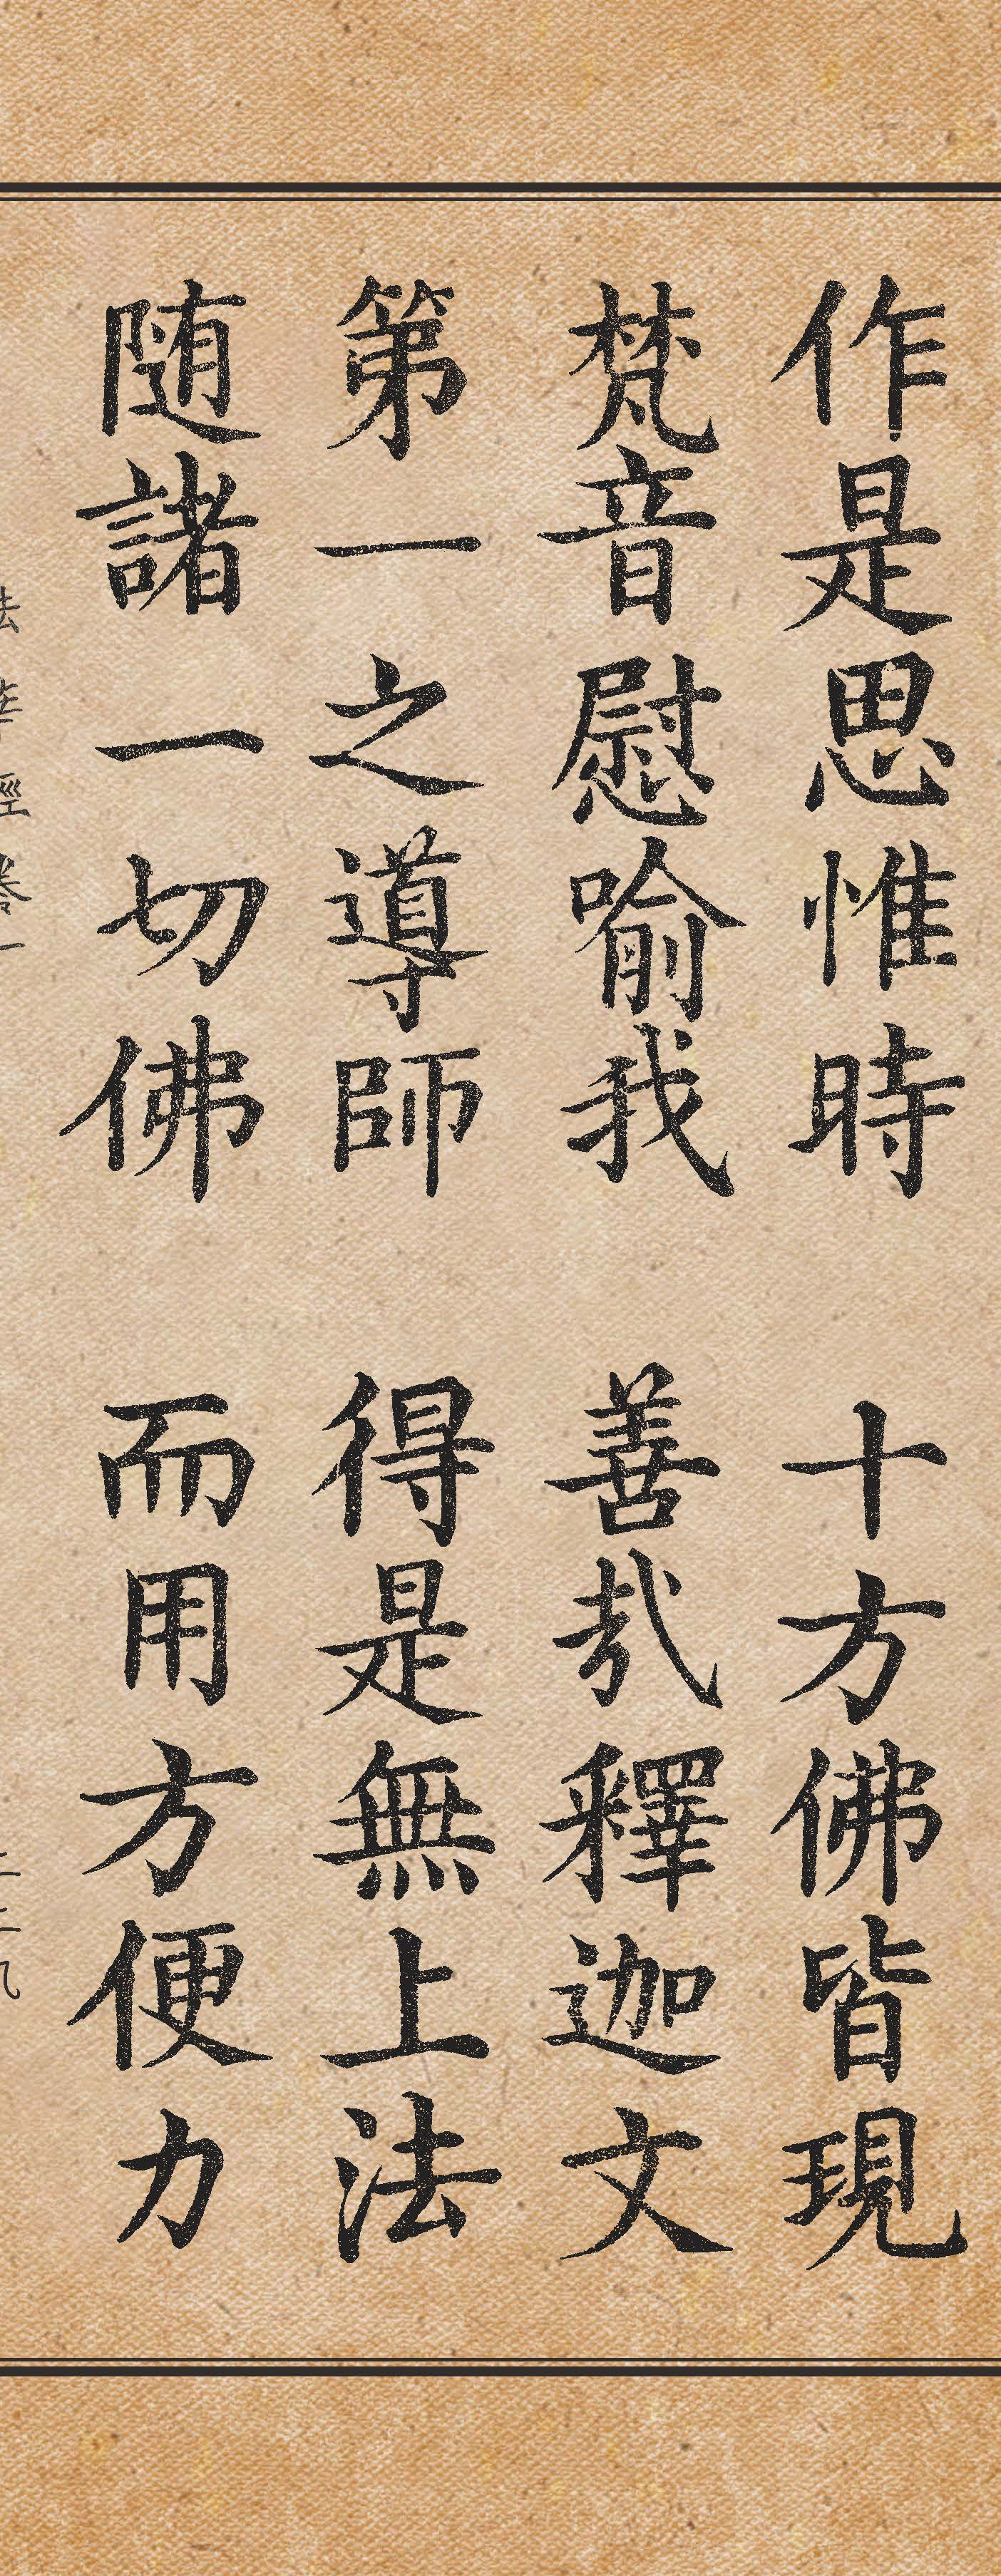 作是思惟時　十方佛皆現
梵音慰喻我　善哉釋迦文
第一之導師　得是無上法
随諸一切佛　而用方便力
法華經卷一　二二九